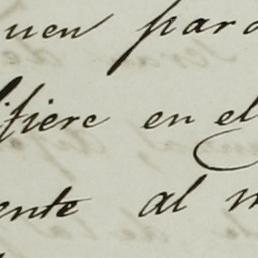 quen para
ifiere en el
ente al